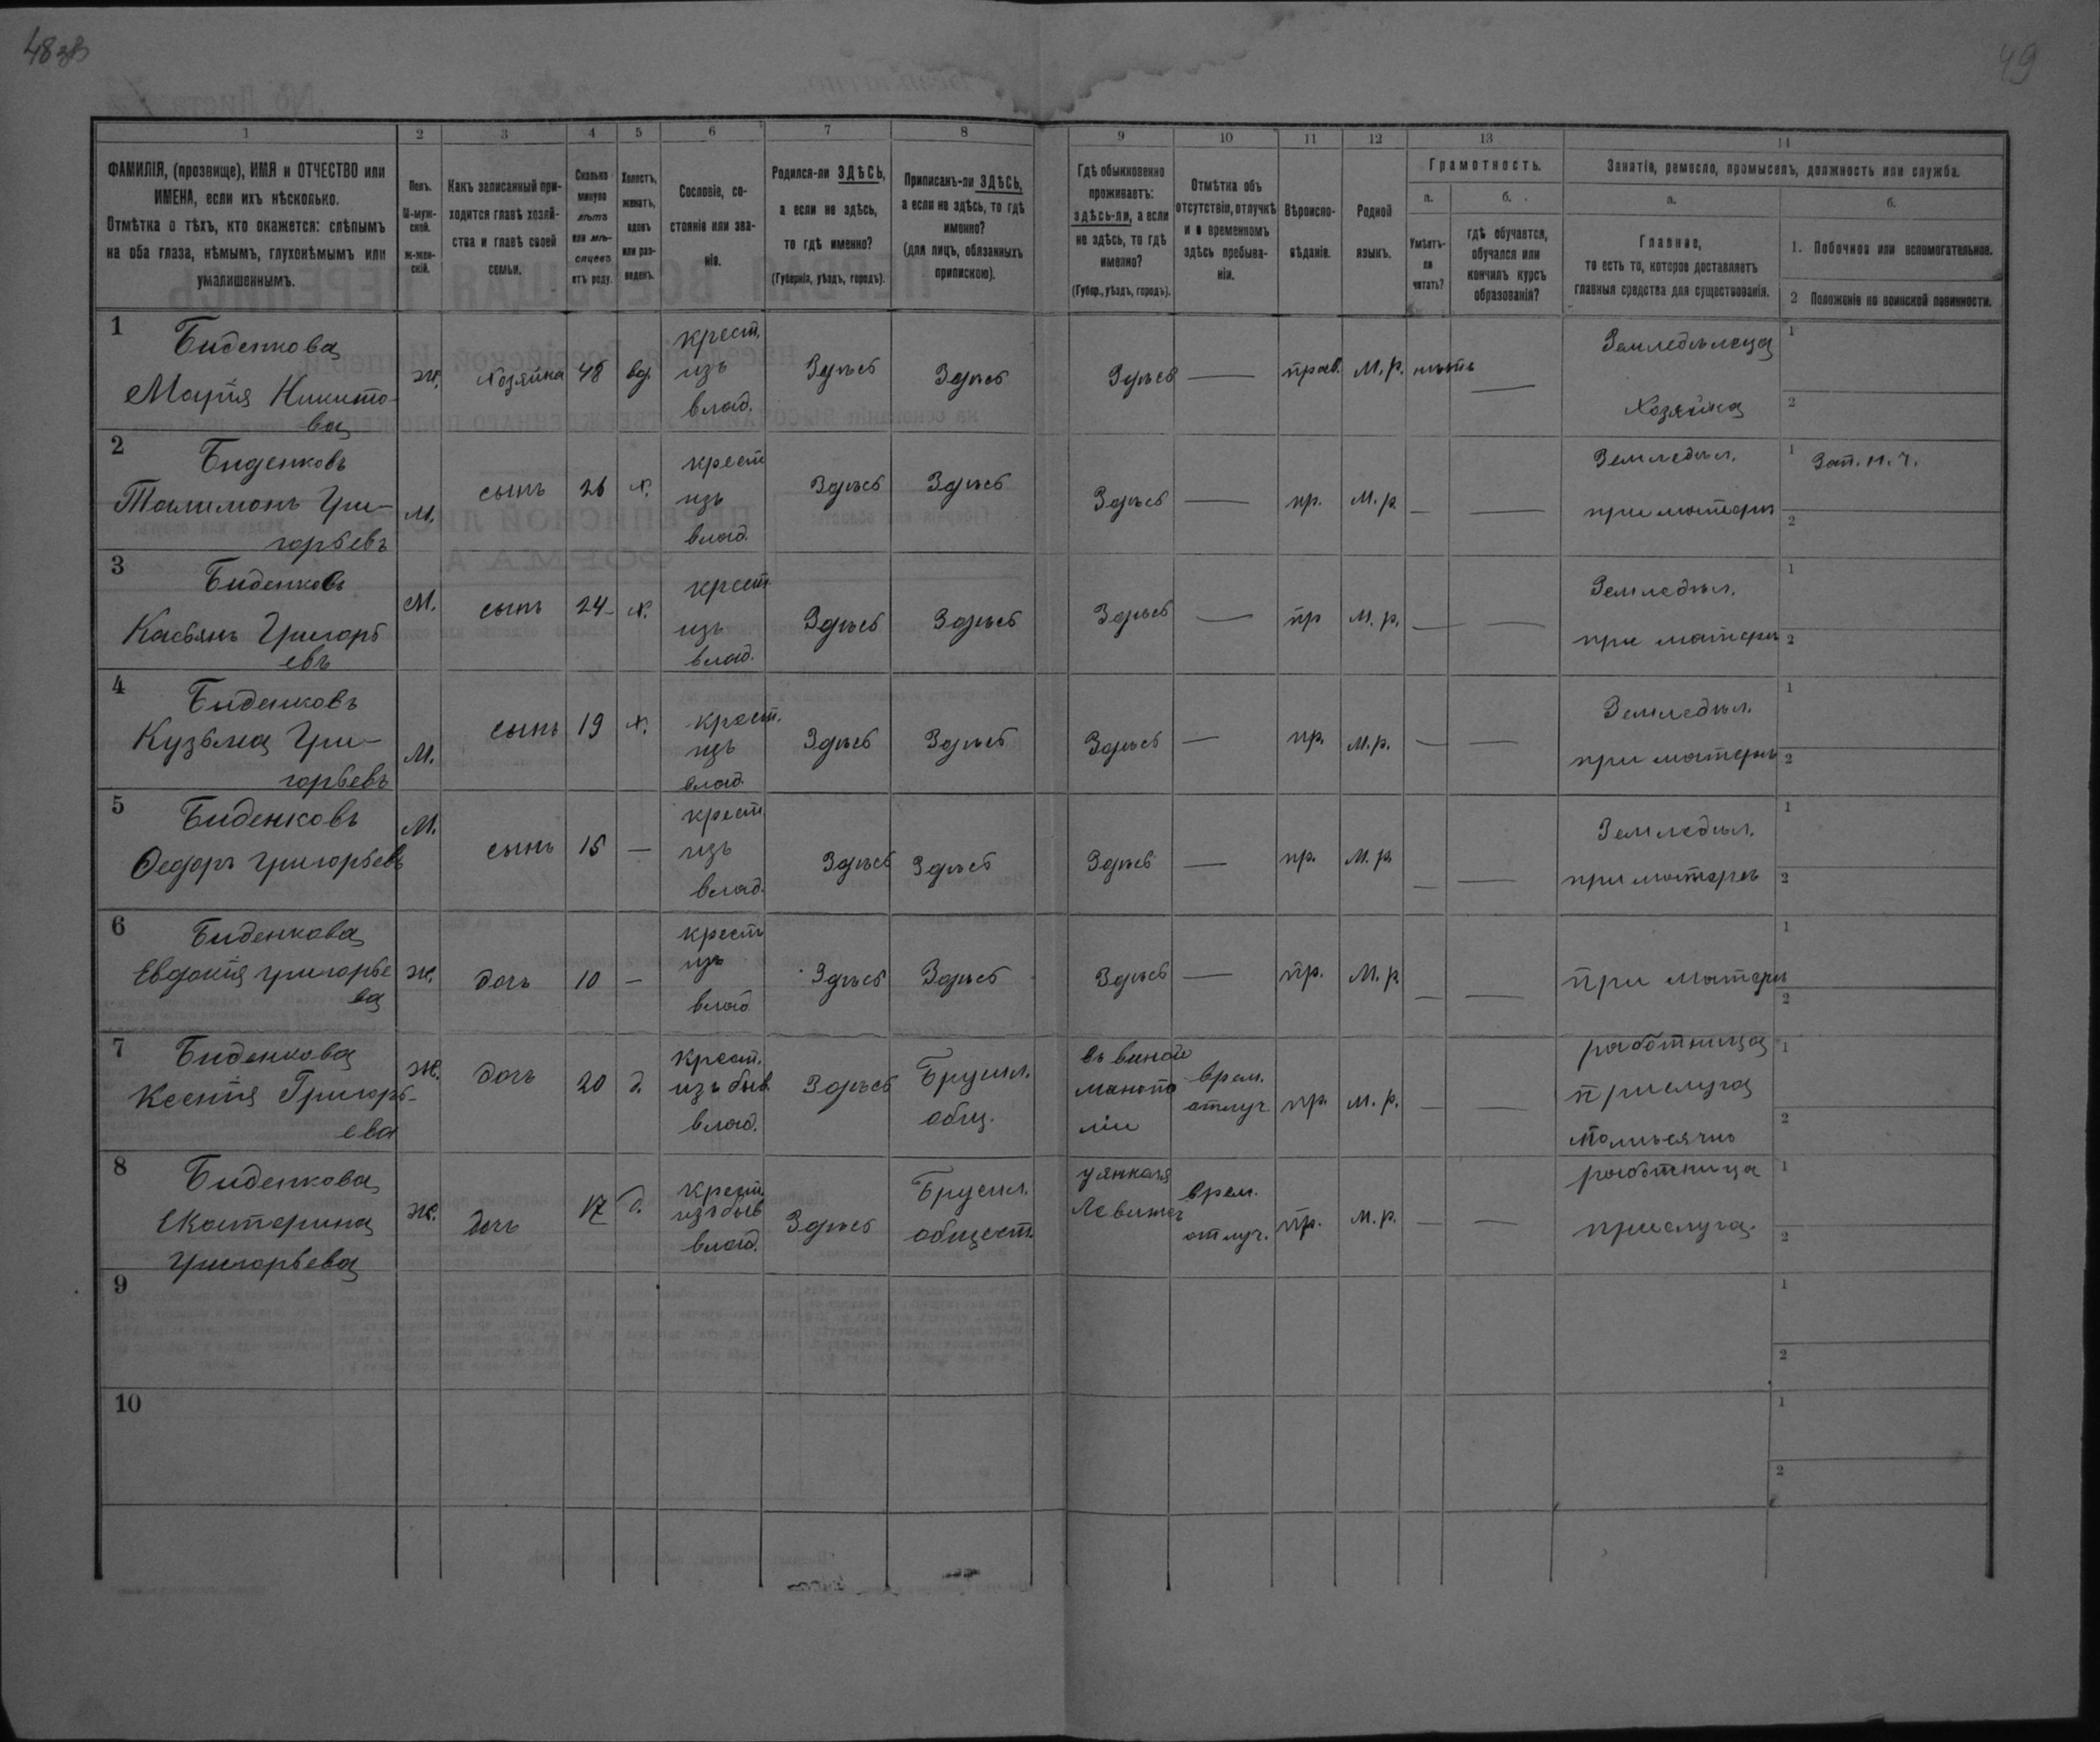 48 об
49
1 2 3 4 5 6 7 8 9 10 11 12 13 14
ФАМИЛІЯ, (прозвище), ИМЯ и ОТЧЕСТВО или
ИМЕНА, если ихъ нѣсколько.
Отмѣтка о тѣхъ, кто окажется: слѣпымъ
на оба глаза, нѣмымъ, глухонѣмымъ или
умалишеннымъ.
Полъ.
М-муж-
ской.
Ж-жен-
скій.
Какъ записанный при-
ходится главѣ хозяй-
ства и главѣ своей
семьи.
Сколько
минуло
лѣтъ
или мѣ-
сяцевъ
отъ роду.
Холостъ,
женатъ,
вдовъ
или раз-
веденъ.
Сословіе, со-
стояніе или зва-
ніе.
Родился-ли ЗДѢСЬ,
а если не здѣсь,
то гдѣ именно?
(Губернія, уѣздъ, городъ).
Приписанъ-ли ЗДѢСЬ,
а если не здѣсь, то гдѣ
именно?
(для лицъ, обязанныхъ
припискою).
Гдѣ обыкновенно
проживаетъ:
здѣсь-ли, а если
не здѣсь, то гдѣ
именно?
(Губер., уѣздъ, городъ).
Отмѣтка объ
отсутствіи, отлучкѣ
и о временномъ
здѣсь пребыва-
ніи.
Вѣроиспо-
вѣданіе.
Родной
языкъ.
Грамотность.
а.
Умѣетъ-
ли
читать?
б.
гдѣ обучается,
обучался или
кончилъ курсъ
образованія?
Занятіе, ремесло, промыселъ, должность или служба.
а.
Главное,
то есть то, которое доставляетъ
главныя средства для существованія.
б.
1. Побочное или вспомогательное.
2 Положеніе по воинской повинности.
1
Биденкова
Марія Никито-
ва
ж. хозяйка 48 вд.
крест.
изъ
влад.
Здѣсь Здѣсь Здѣсь — прав. М.р. нѣтъ —
Земледѣлица
Хозяйка
1
2
2
Биденковъ
Талимонъ Гри-
горьевъ
М. сынъ 26 х.
крест
изъ
влад.
Здѣсь Здѣсь Здѣсь — пр. М.р. — —
Земледѣл.
при матери
1 Зап. н. ч.
2
3
Биденковъ
Касьянъ Григорь
евъ
М. сынъ 24 х.
крест
изъ
влад.
Здѣсь Здѣсь Здѣсь — пр М.р. — —
Земледѣл.
при матери
1
2
4
Биденковъ
Кузьма Гри-
горьевъ
М. сынъ 19 х.
крест.
изъ
влад.
Здѣсь Здѣсь Здѣсь — пр. М.р. — —
Земледѣл.
при матери
1
2
5
Биденковъ
Ѳедоръ Григорьевъ
М. сынъ 15 —
крест
изъ
влад.
Здѣсь Здѣсь Здѣсь — пр. М.р. — —
Земледѣл.
при матери
1
2
6
Биденкова
Евдокія Григорье
ва
ж. дочь 10 —
крест
изъ
влад
Здѣсь Здѣсь Здѣсь — пр. М.р. — —
при матери
1
2
7
Биденкова
Ксенія Григорь-
ева
ж. дочь 20 д.
крест.
изъ быв.
влад.
Здѣсь
Брусил.
общ.
въ виной
монопо
ліи
врем.
отлуч.
пр. М.р. — —
работница
прислуга
1
2
8
Биденкова
Екатерина
Григорьева
ж. дочь 17 д.
крест.
изъ быв
влад.
Здѣсь
Брусил.
общест.
врем.
отлуч.
пр. М.р. — —
работница
прислуга.
1
2
9
1
2
10
1
2